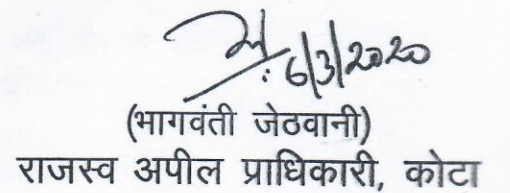 6/3/2020
(भागवंती जेठवानी)
राजस्व अपील प्राधिकारी, कोटा